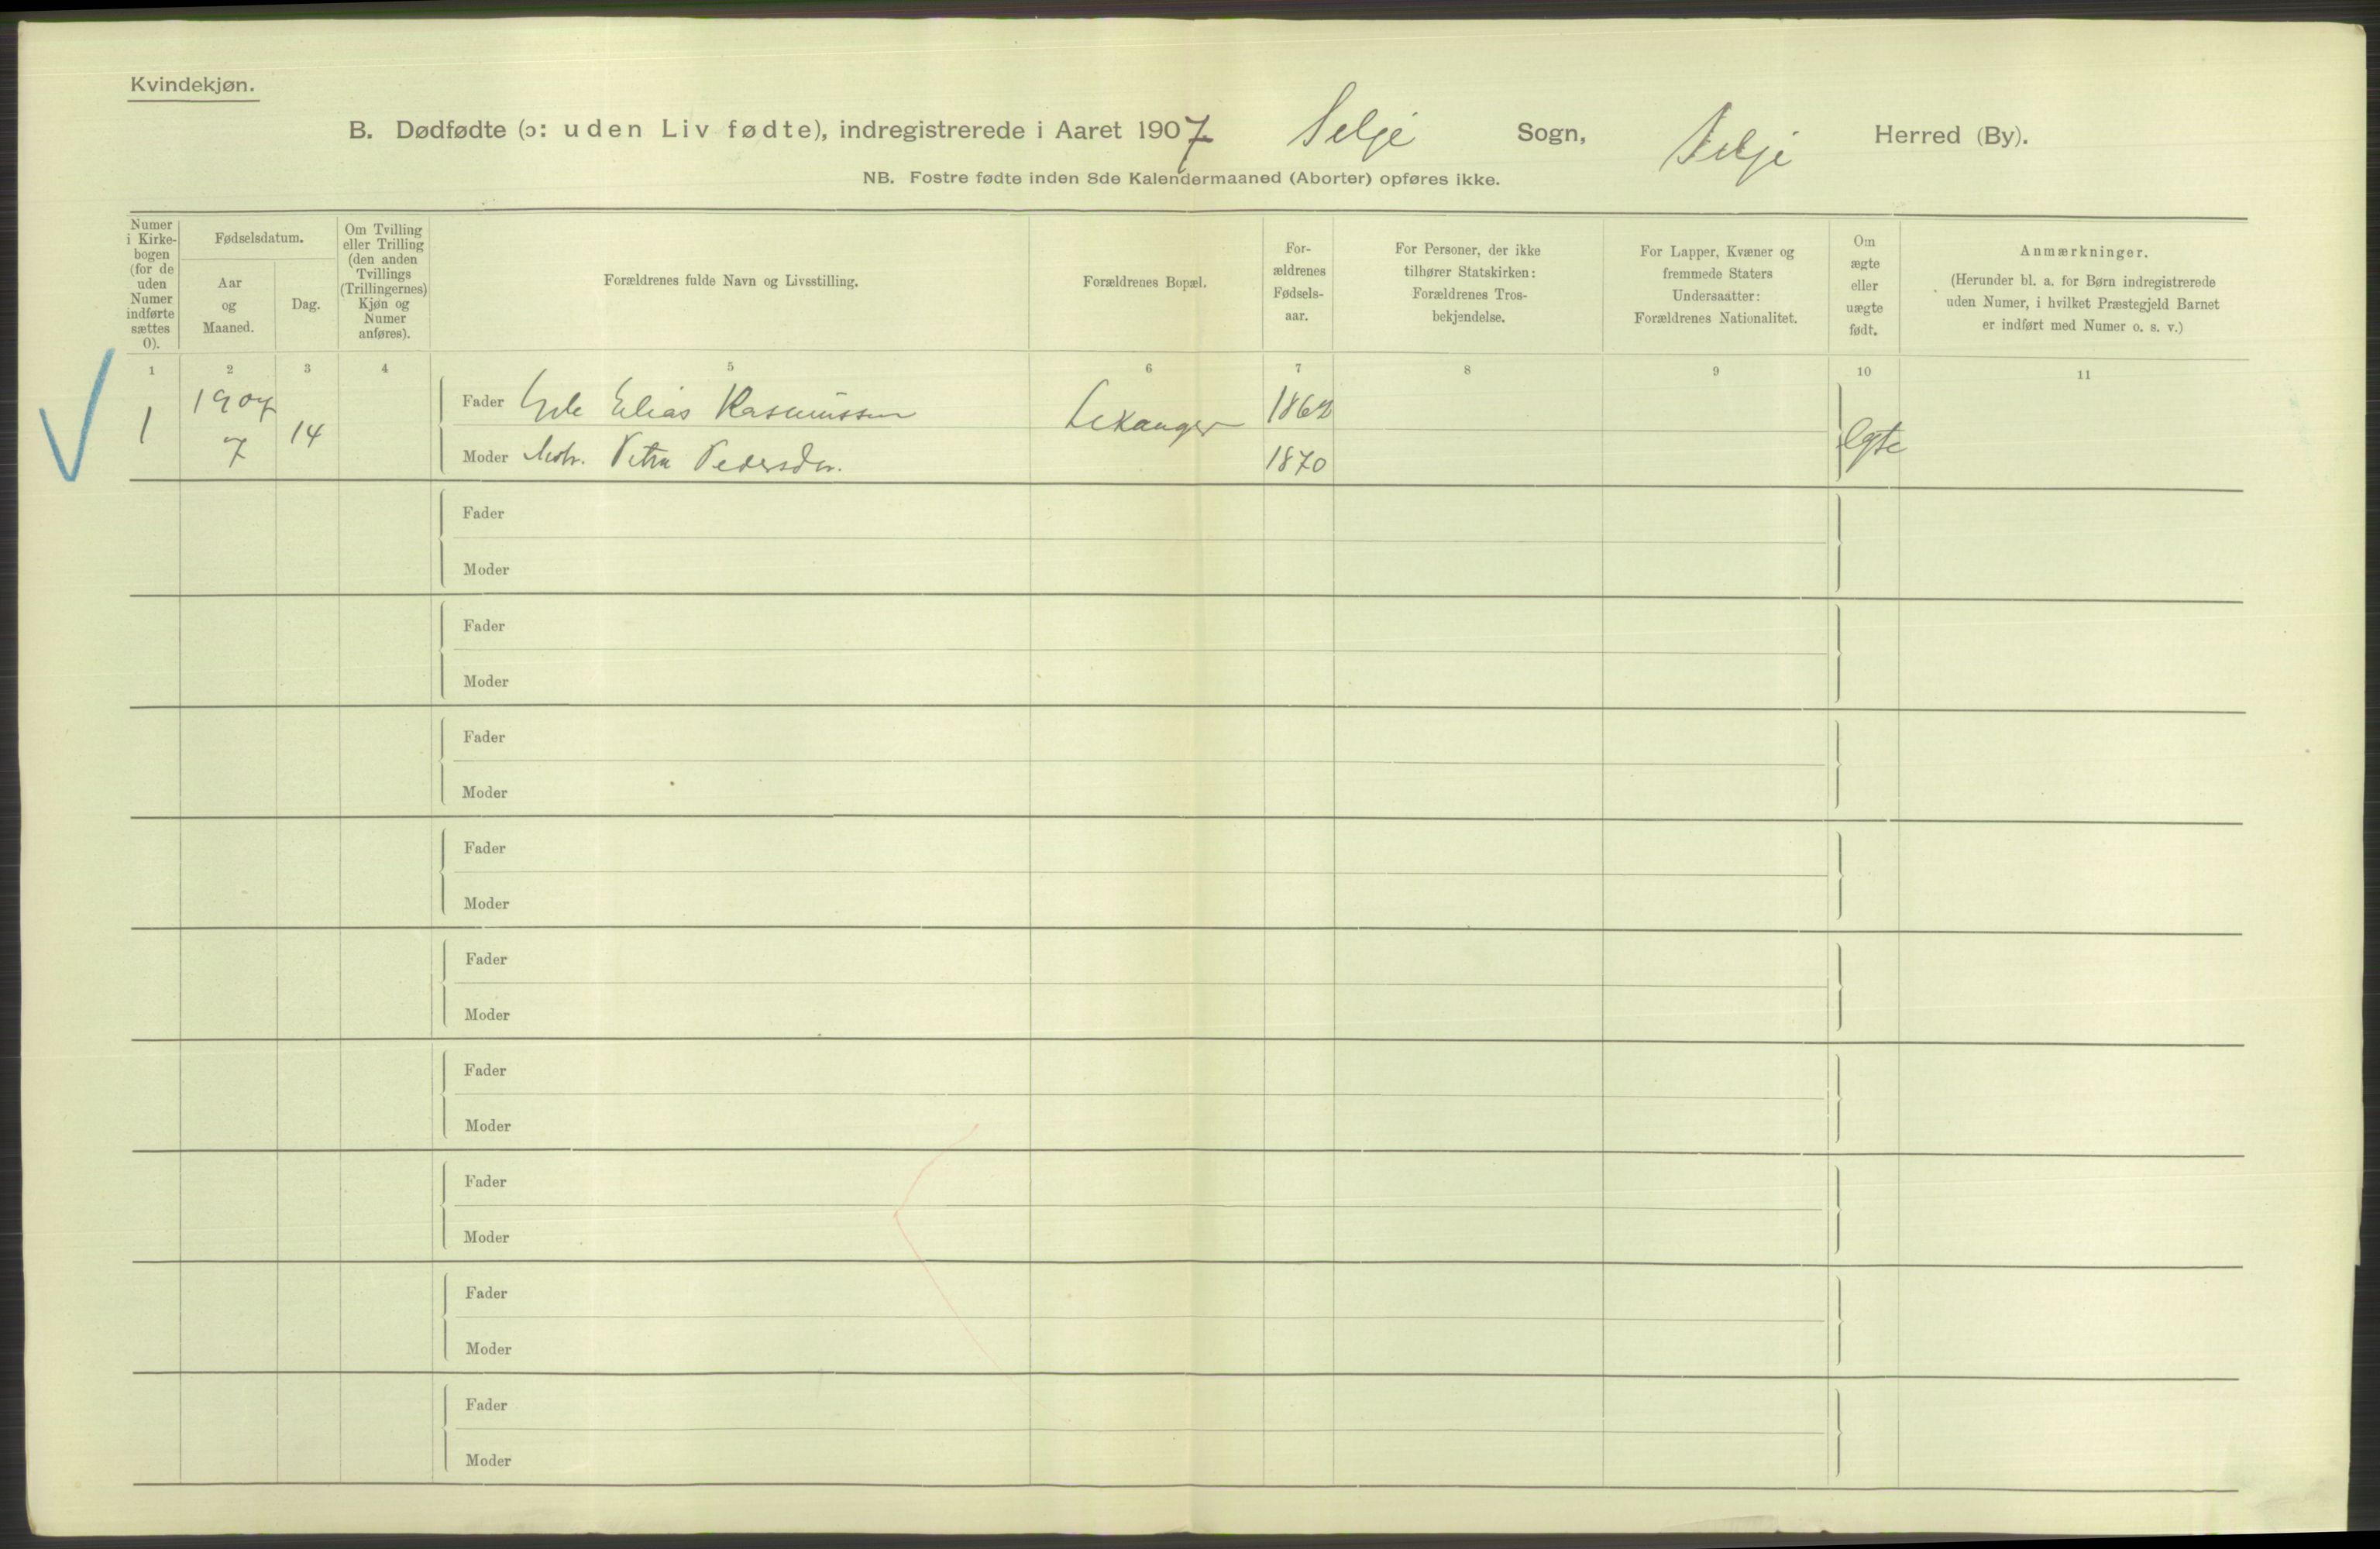 Kvindekjøn.
B. Dødfødte (ɔ: uden Liv fødte), indregistrerede i Aaret 1907 Selje Sogn, Selje Herred (By).
NB. Fostre fødte inden 8de Kalendermaaned (Aborter) opføres ikke.
Numer
i Kirke-
bogen
(for de
uden
Numer
indførte
sættes
0).
Fødselsdatum.
Aar
og
Maaned.
Dag.
Om Tvilling
eller Trilling
(den anden
Tvillings
(Trillingernes)
Kjøn og
Numer
anføres).
Forældrenes fulde Navn og Livsstilling.
Forældrenes Bopæl.
For-
ældrenes
Fødsels-
aar.
For Personer, der ikke
tilhører Statskirken:
Forældrenes Tros-
bekjendelse.
For Lapper, Kvæner og
fremmede Staters
Undersaatter:
Forældrenes Nationalitet.
Om
ægte
eller
uægte
født.
Anmærkninger.
(Herunder bl. a. for Børn indregistrerede
uden Numer, i hvilket Præstegjeld Barnet
er indført med Numer o. s. v.)
1 2 3 4 5 6 7 8 9 10 11
1 1907 7 14
Fader Elias Rasmussen Lekanger 1862
Moder Petra Pedersdr. 1870
Egte
Fader
Moder
Fader
Moder
Fader
Moder
Fader
Moder
Fader
Moder
Fader
Moder
Fader
Moder
Fader
Moder
Fader
Moder